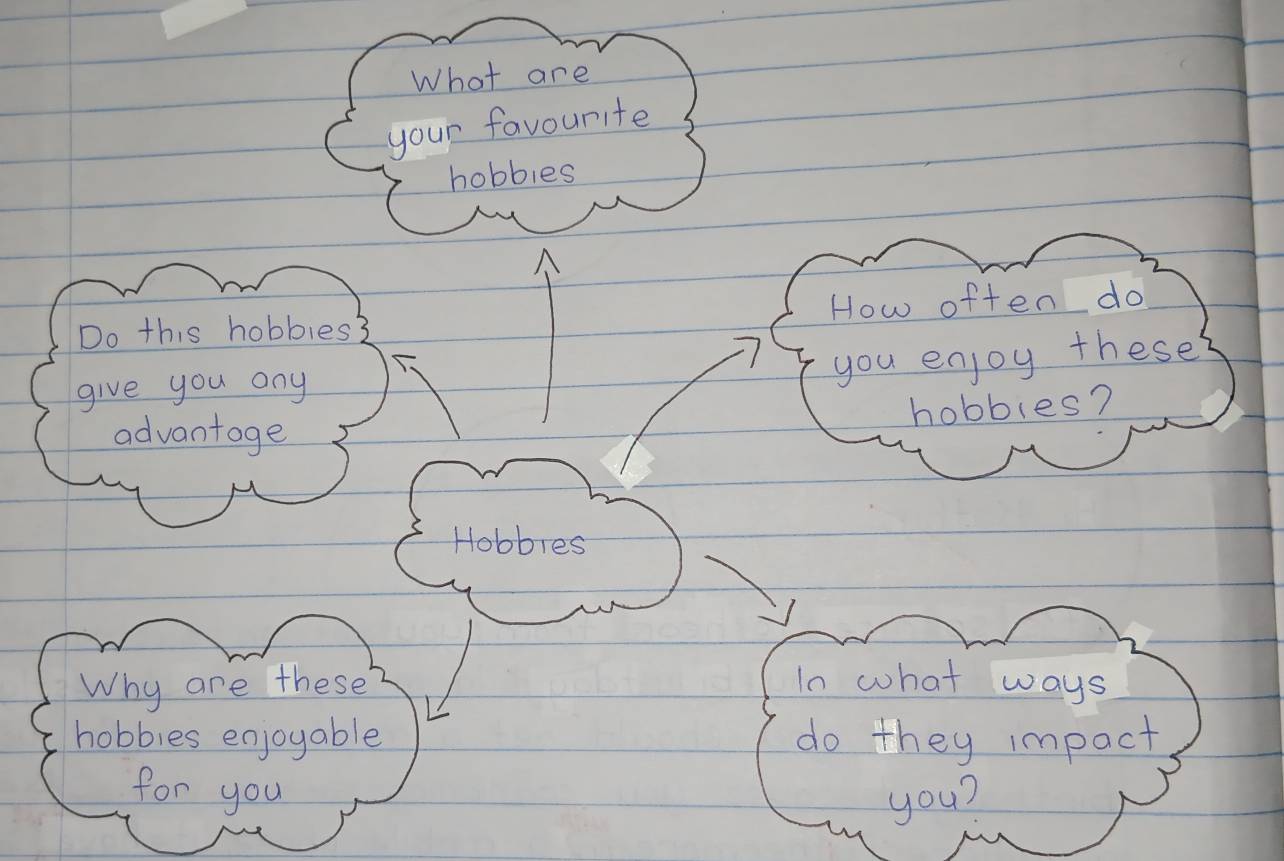 What are
your favourite
hobbies
Do this hobbies
give you any
advantage
How often do
you enjoy these
hobbies?
Hobbies
Why are these
hobbies enjoyable
for you
In what ways
do they impact
you?